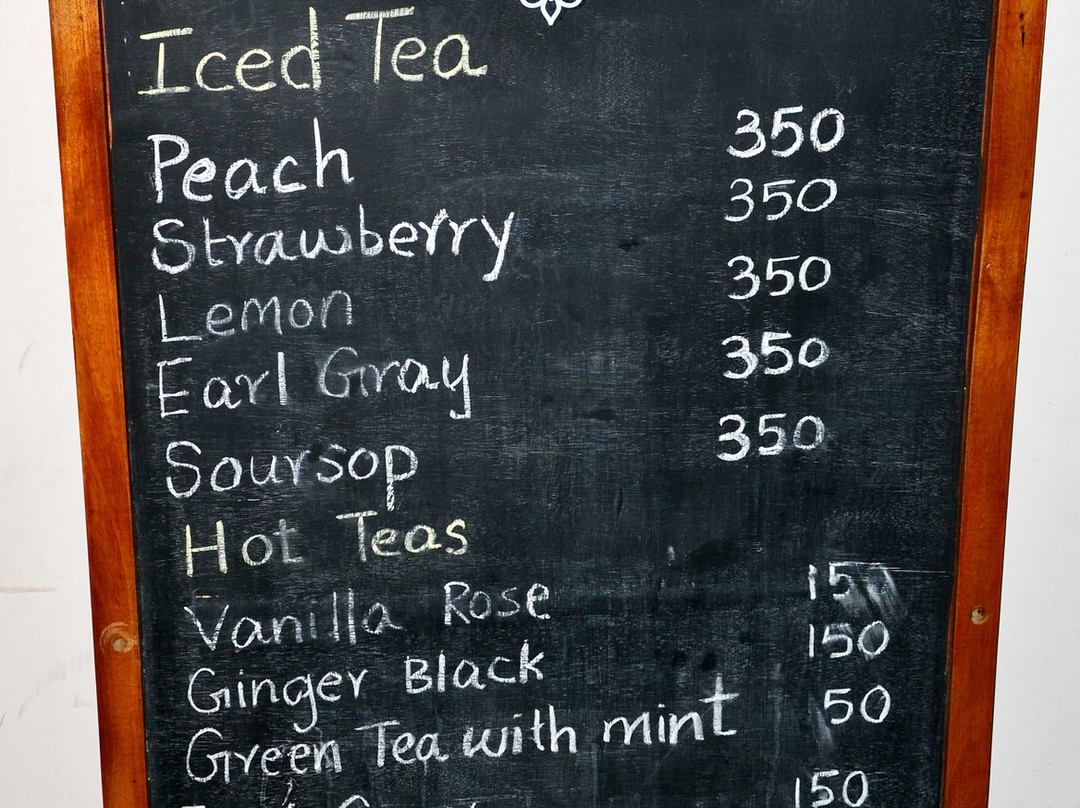 Iced Tea
Peach 350
Strawberry 350
Lemon 350
Earl Gray 350
Soursop 350
Hot Teas
Vanilla Rose 15
Ginger Black 150
Green Tea with mint 50
150